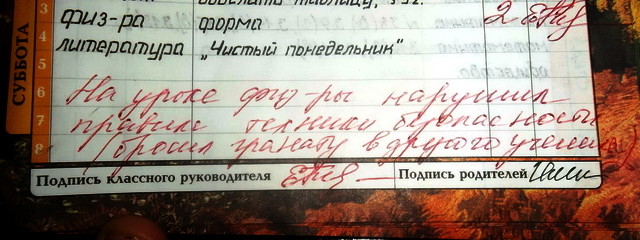 СУББОТА
3
4 физ-ра форма 2
5 литература „Чистый понедельник"
6 На уроке физ-ры нарушил
7 правила техники безопасности
8 (бросил гранату в другого ученика)
Подпись классного руководителя Подпись родителей